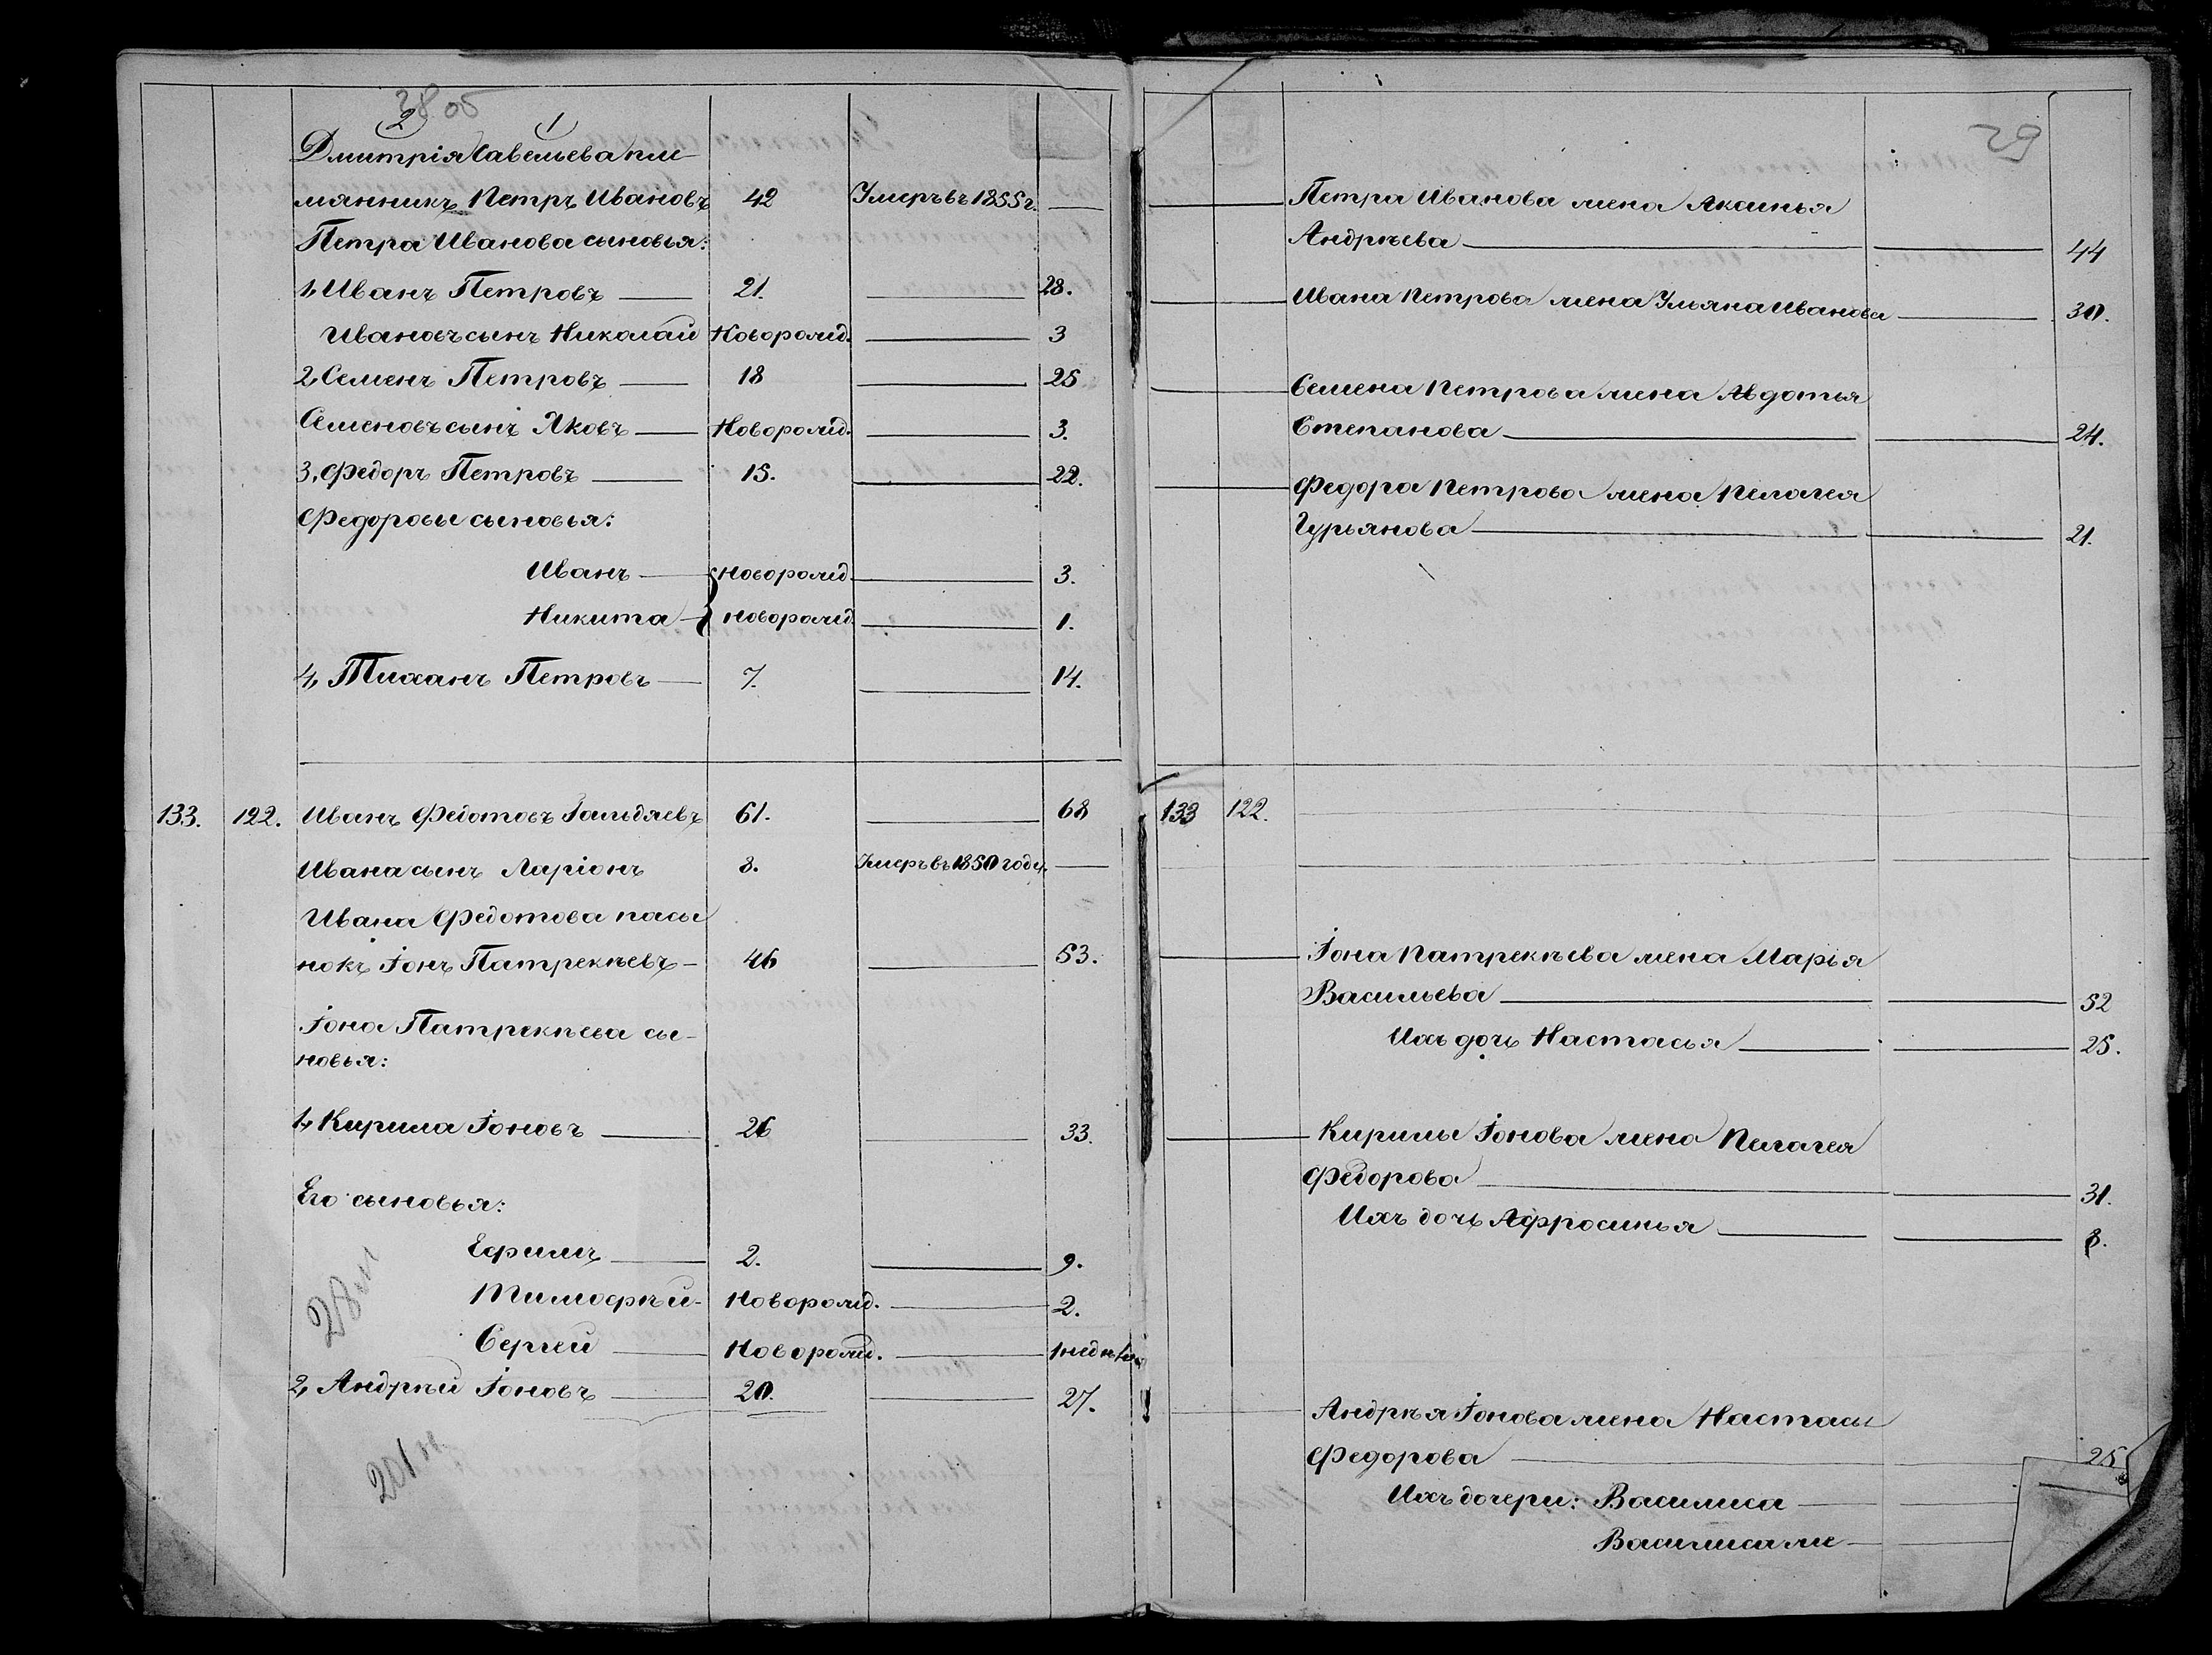 38 об
2 1
Дмитрія Савельева пле
мянникъ Петръ Ивановъ 42 Умеръ въ 1855 г.
Петра Иванова сыновья:
1, Иванъ Петровъ 21. 28.
Ивановъ сынъ Николай Новорожд. 3
2, Семенъ Петровъ 18 25
Семеновъ сынъ Яковъ Новорожд. 3.
3, Федоръ Петровъ 15. 22.
Федоровы сыновья:
Иванъ новорожд. 3.
Никита новорожд. 1.
4, Тиханъ Петровъ 7. 14.
133. 122. Иванъ Федотовъ Гальдяевъ 61. 68
Ивана сынъ Ларіонъ 8. Умеръ въ 1850 году.
Ивана Федотова пасы
нокъ Іонъ Патрекѣевъ 46 53.
Іона Патрекѣева сы-
новья:
1, Кирила Іоновъ 26 33.
Его сыновья:
Ефимъ 2. 9.
Тимофѣй Новорожд. 2.
Сергей Новорожд. 1 недѣли
2, Андрѣй Іоновъ 20. 27.
28 м
201 м
29
Петра Иванова жена Аксинья
Андрѣева 44
Ивана Петрова жена Ульяна Иванова 30.
Семена Петрова жена Авдотья
Степанова 24.
Федора Петрова жена Пелагея
Гурьянова 21.
133 122.
Іона Патрекѣева жена Марья
Васильева 52
Ихъ дочь Настасья 25.
Кирилы Іонова жена Пелагея
Федорова 31.
Ихъ дочь Афросинья 8.
Андрѣя Іонова жена Настасьі
Федорова 25
Ихъ дочери: Василиса
Василиса же